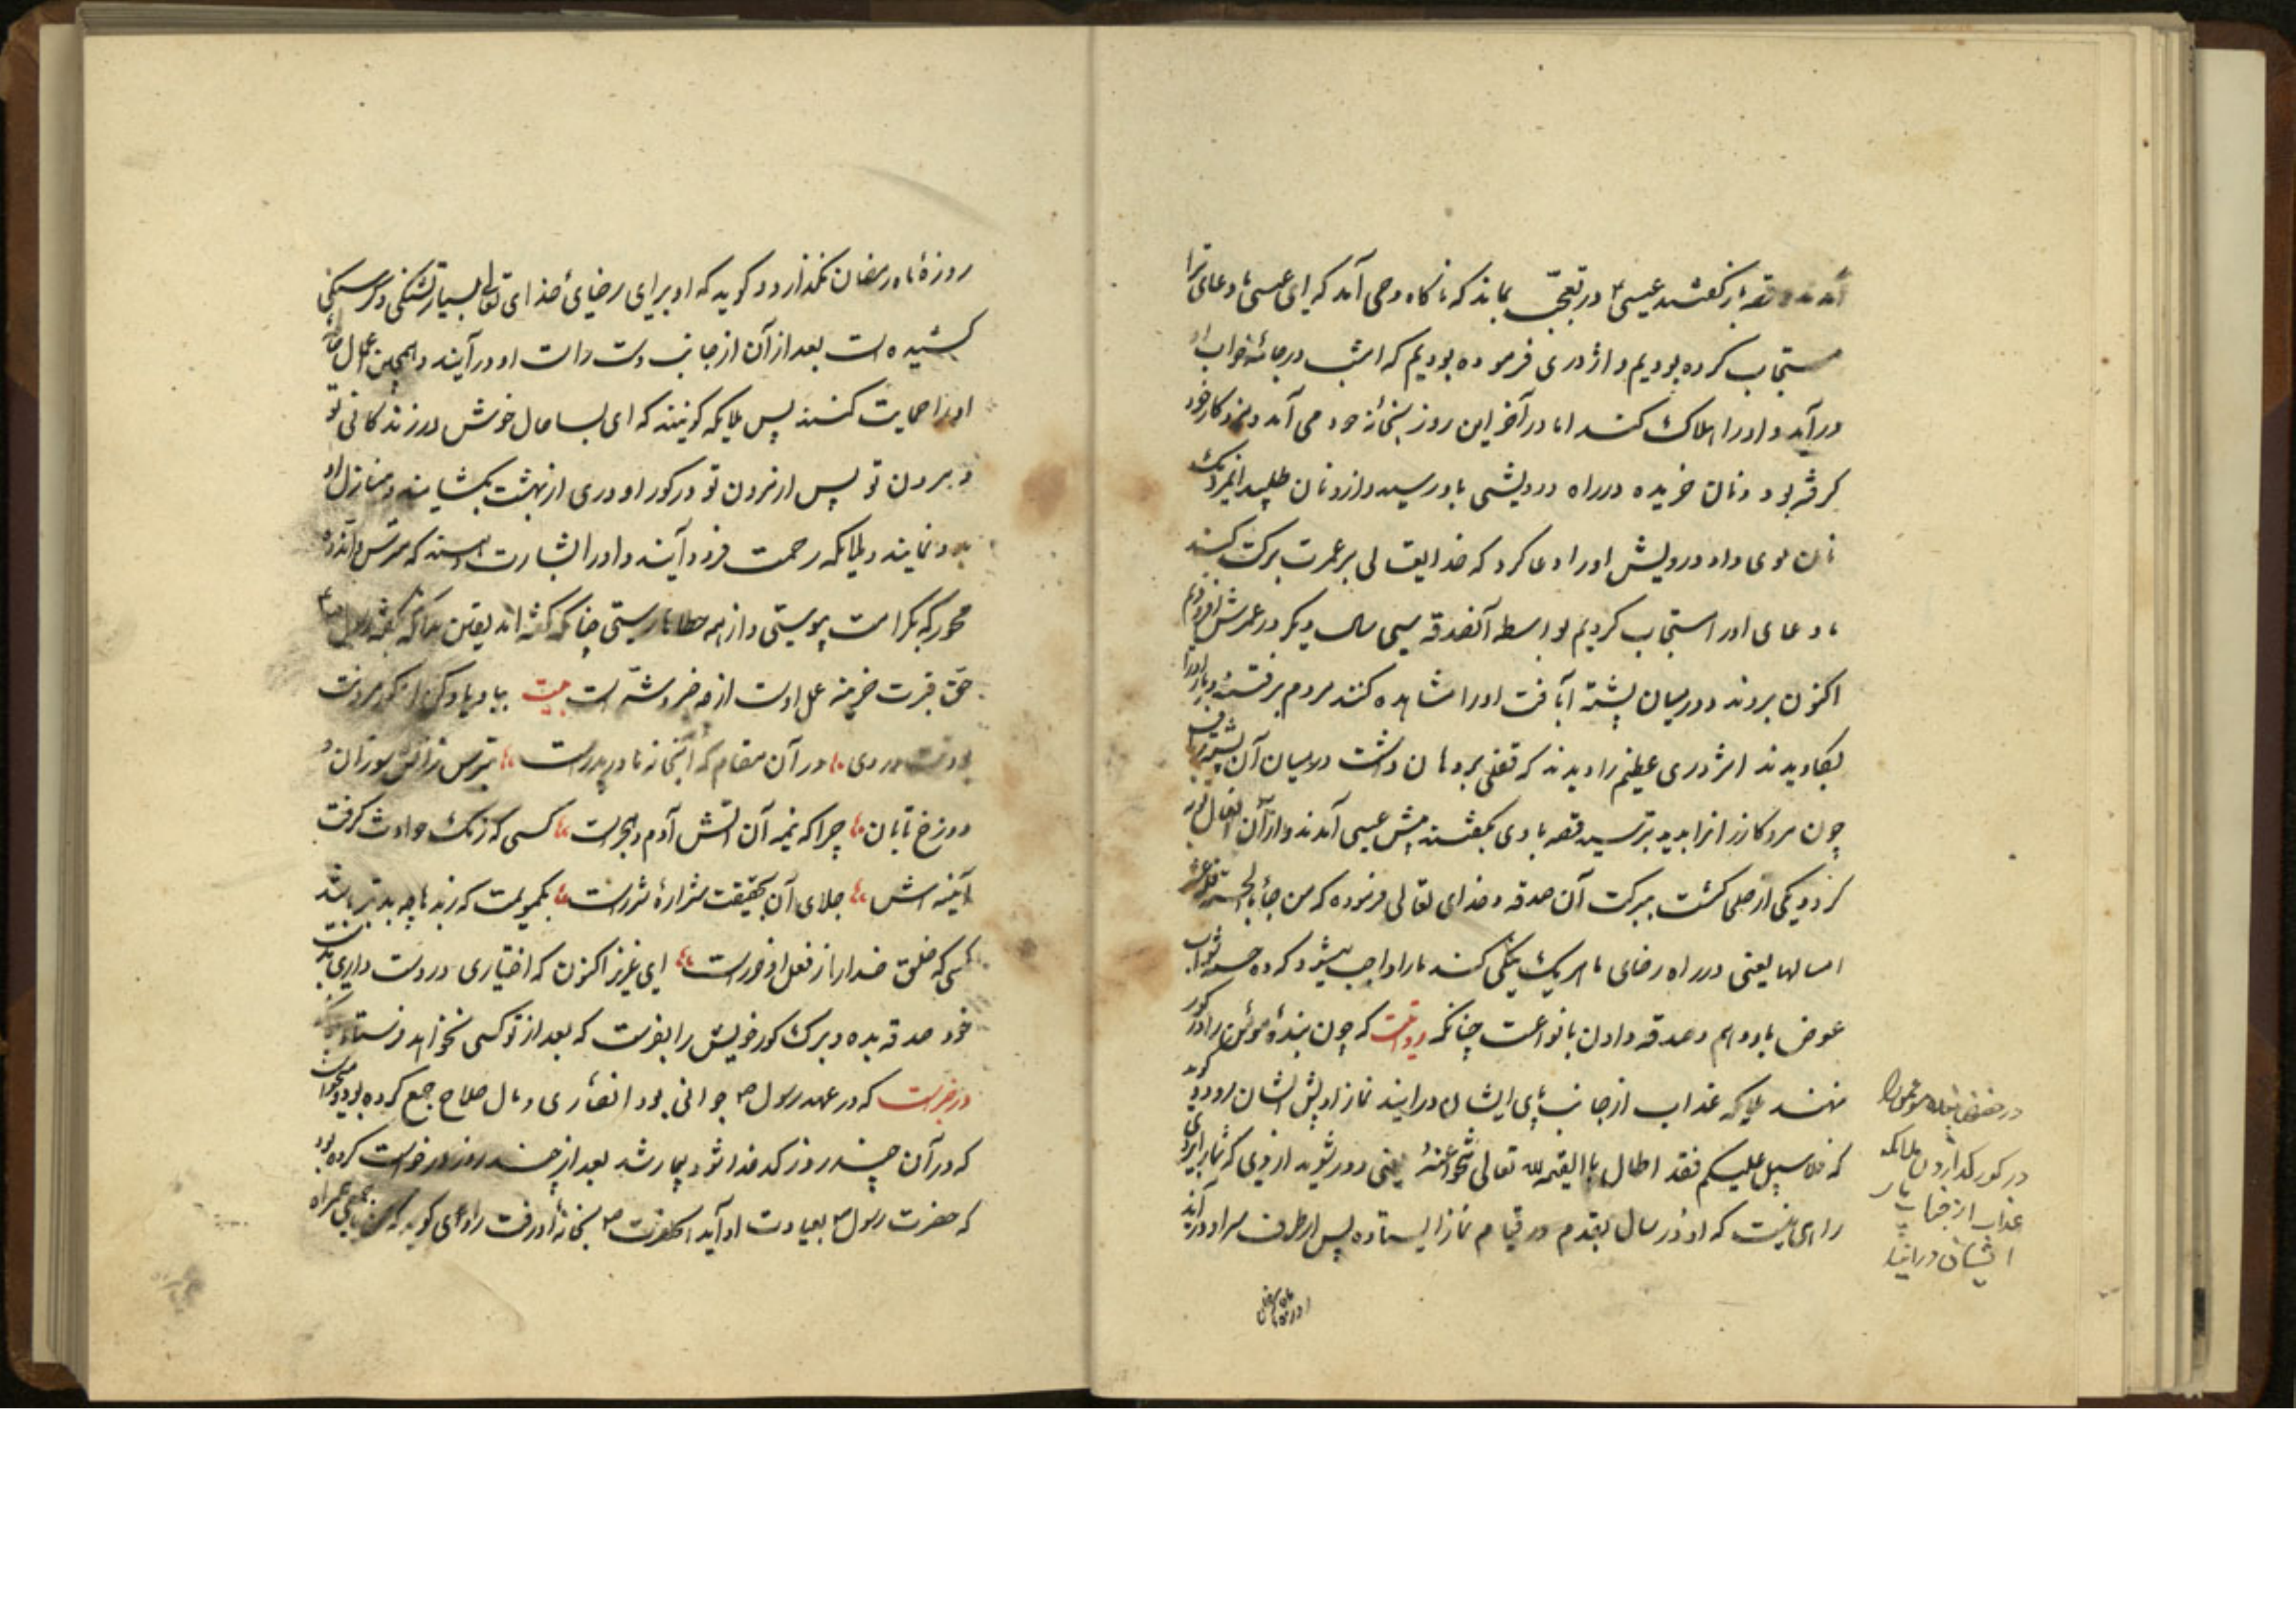 آمدند و قصه باز گفتند عیسی در تعجّب بماند که ناکاه وحی آمد که ای عیسی ما دعای ترا
مستجاب کرده بودیم و اژدری فرموده بودیم که امشب در جائه خواب او
درآید و اورا هلاک کند اما در آخر این روز بخانه خود می آمد و مزد کار خود
کرفته بود و نان خریده در راه درویشی باو رسید و ازو نان طلبید انمرد یک
نان بوی داد درویش اورا دعا کرد که خدایتعالی بر عمرت برکت کند
ما دعای اورا مستجاب کردیم بواسطه آنصدقه سی سال دیکر در عمرش افزودیم
اکنون بروند و در میان پشته آبافت اورا مشاهده کنند مردم برفتند و بار اورا
بکاویدند اژدری عظیم را دیدند که قفلی بر دهان داشت در میان آن پشته
چون مرد کازر انرا بدید بترسید قصه با وی بکفتند پیش عیسی آمدند و از آن افعال توبه
کرد و یکی از صلحا کشت ببرکت آن صدقه و خدای تعالی فرموده که من جاء بالحسنة فله عشر
امثالها یعنی در راه رضای ما هر یک نیکی کند ما را واجب میشود که ده حسنه ثواب
عوض باو دهم و صدقه دادن بانواعست چنانکه روایتست که چون بندهٔ مؤمن را در کور
نهند ملایکه عذاب از جانب پای ایشان درایند نماز او پیش ایشان رود و کوید
که فلا سبیل علیکم فقد اطال بالقیام لله تعالی یعنی دور شوید از وی که شما را بر وی
راهی نیست که او در سال بقدم در قیام نماز ایستاده پس از طرف سر او درآیند
در کور کذارند ملائکه
عذاب از جناب پای
ایشان درایند
روزهٔ ماه رمضان نکذارد و کوید که او برای رضای خدای تعالی بسیار تشنکی و کرسنکی
کشیده است بعد از آن از جانب دست راست او درآیند و همچنین اعمال
اورا حمایت کنند پس ملایکه کویند که ای بسا حال خوش در زندکانی تو
و مردن تو پس از مردن تو در کور او دری از بهشت بکشایند و منازل او
بدو نمایند و ملایکه رحمت فرود آیند و اورا بشارت دهند که مترس و اندوه
مخور که بکرامت پیوستی و از همه خطاها رستی چنانکه کفته اند یقین
حق قبرت خزینه عمل اوست ازو خروشته است بیت بیا و یاد کن از کور
روی در آن مقام که انجا نه مادر پدرست بترس ز آتش سوزان
دوزخ تابان چرا که نیمه آن اتش آدم و حجرست کسی که زنک حوادث کرفت
آیینه اش جلای آن بحقیقت شرارهٔ شررست بکویمت که ز بدها چه بدتر باشد
کسی که خلق خدارا ز فعل او ضررست ای عزیز اکنون که اختیاری در دست داری بدست
خود صدقه بده و برک کور خویش را بفرست که بعد از تو کسی نخواهد فرستاد
در خبرست که در عهد رسول جوانی بود انصاری و مال صلاح جمع کرده بود و میخواست
که در آن چند روز کدخدا شود بیمار شد بعد از چند روز درخواست کرده بود
که حضرت رسول بعیادت او آید انحضرت بخانه او رفت راوی کوید که من همراه